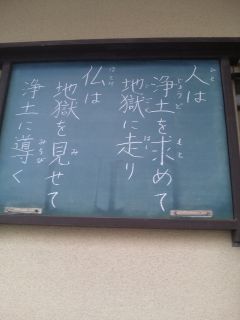 人は
浄土を求めて
地獄に走り
仏は
地獄を見せて
浄土に導く